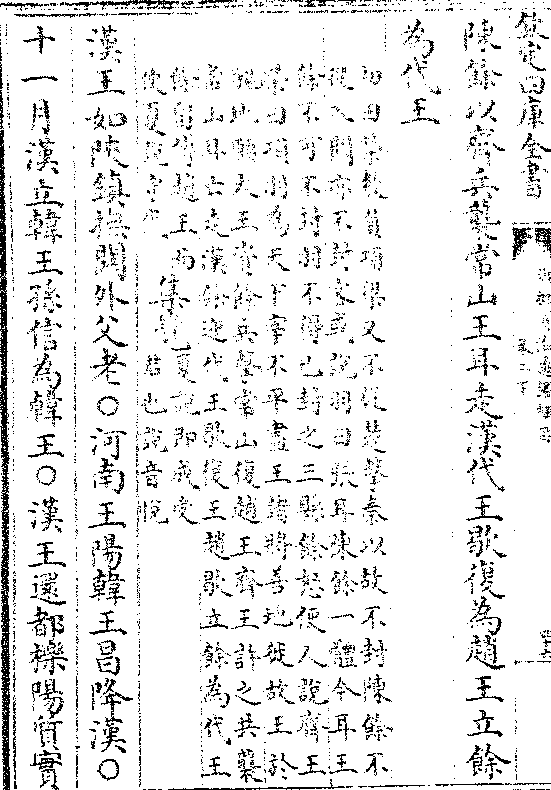 欽定四庫全書
陳餘以齊兵襲常山王耳走漢代王歇復為趙王立餘
為代王
初田榮數負項梁又不從楚擊秦以故不封陳餘不
從入關亦不封客或說羽曰張耳陳餘一體今耳王
餘不可不封羽不得已封之三縣餘怒使人說齊王
榮曰項羽為天下宰不平盡王諸將善地徙故王於
醜地願大王資餘兵擊常山復趙王齊王許之共襲
常山耳亡走漢餘迎代王歇復王趙歇立餘為代王
餘留傅趙王而
使夏說守代
集覽
夏說即成安
君也說音悅
漢王如陝鎮撫關外父老○河南王陽韓王昌降漢○
十一月漢立韓王孫信為韓王○漢王還都櫟陽質實